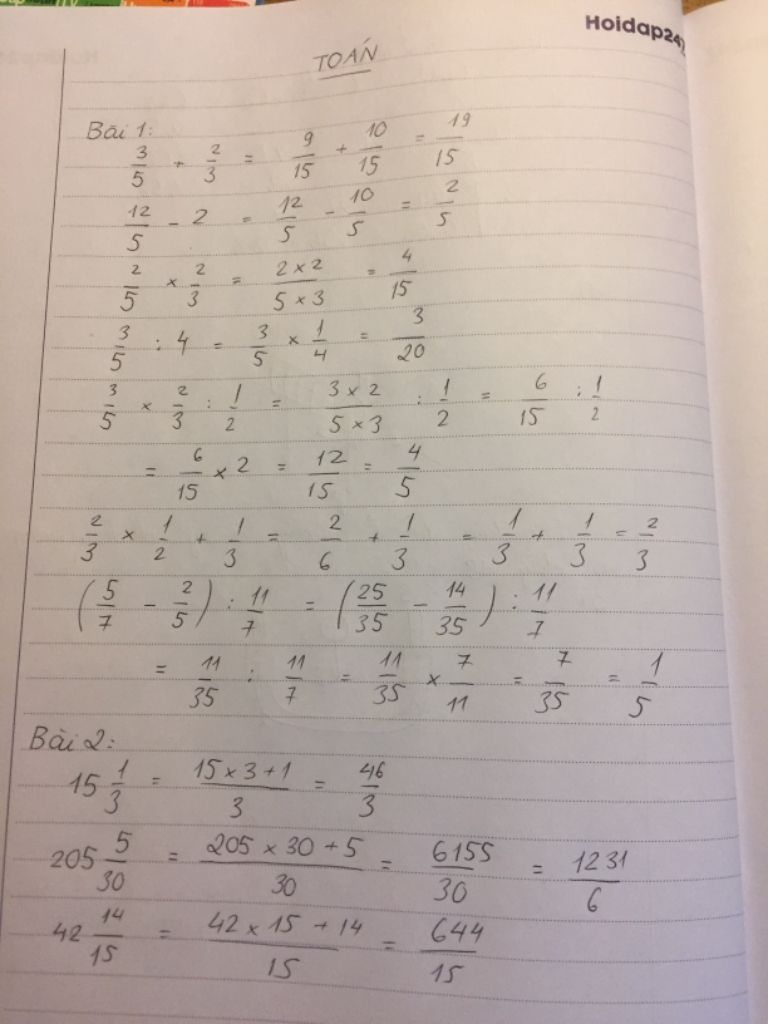 Hoidap247
TOÁN
Bài 1:
3/5 + 2/3 = 9/15 + 10/15 = 19/15
12/5 - 2 = 12/5 - 10/5 = 2/5
2/5 × 2/3 = 2 × 2/5 × 3 = 4/15
3/5 : 4 = 3/5 × 1/4 = 3/20
3/5 × 2/3 : 1/2 = 3 × 2/5 × 3 : 1/2 = 6/15 : 1/2
= 6/15 × 2 = 12/15 = 4/5
2/3 × 1/2 + 1/3 = 2/6 + 1/3 = 1/3 + 1/3 = 2/3
(5/7 - 2/5) : 11/7 = (25/35 - 14/35) : 11/7
= 11/35 : 11/7 = 11/35 × 7/11 = 7/35 = 1/5
Bài 2:
15 1/3 = 15 × 3 + 1/3 = 46/3
205 5/30 = 205 × 30 + 5/30 = 6155/30 = 1231/6
42 14/15 = 42 × 15 + 14/15 = 644/15